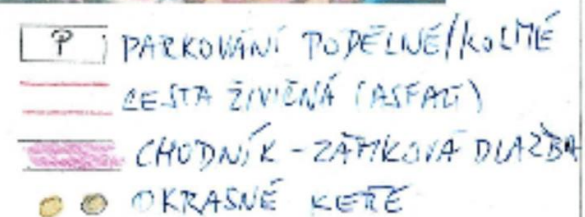 P PARKOVÁNÍ PODÉLNÉ/KOLMÉ
CESTA ŽIVIČNÁ (ASFALT)
CHODNÍK - ZÁMKOVÁ DLAŽBA
OKRASNÉ KEŘE